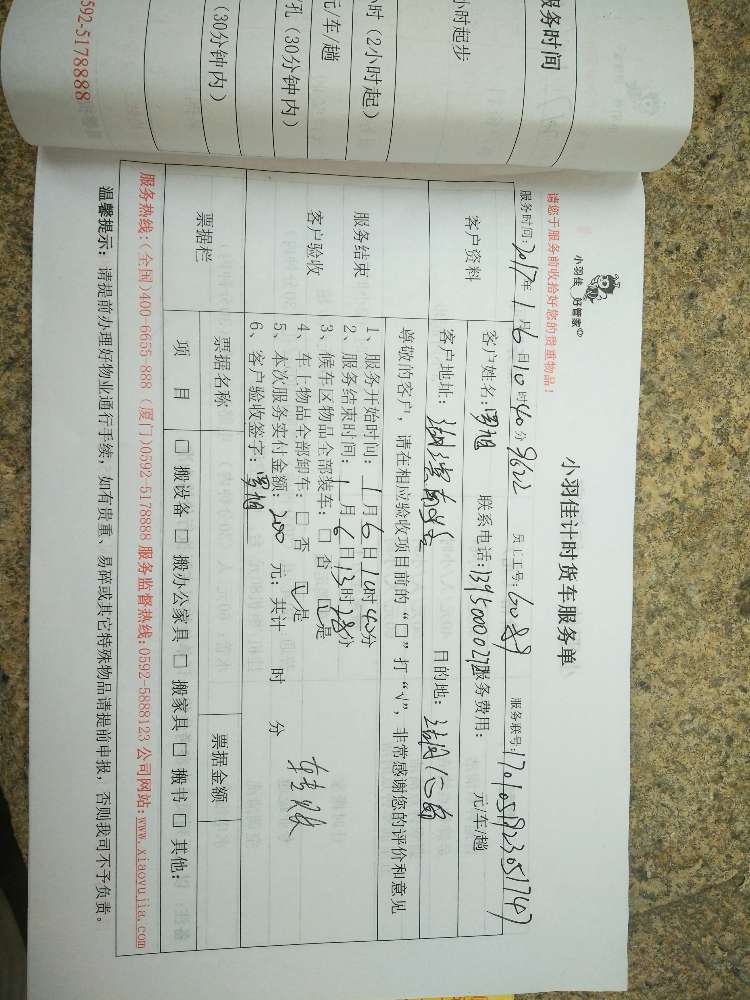 服务时间
小时起步
小时（2小时起）
元/车/趟
孔（30分钟内）
（30分钟内）
0592-5178888
小羽佳 好管家
小羽佳计时货车服务单
请您于服务前收拾好您的贵重物品！
服务时间：2017年1月6日10时40分 员工工号： 服务联号：
客户资料
客户姓名：罗旭 联系电话： 服务费用： 元/车/趟
客户地址： 目的地：
尊敬的客户，请在相应验收项目前的“□”打“√”，非常感谢您的评价和意见
服务结束
客户验收
1、服务开始时间：1月6日10时40分
2、服务结束时间：1月6日13时28分
3、候车区物品全部装车：□ 否 ☑是
4、车上物品全部卸车：□ 否 ☑是
5、本次服务实付金额：200 元；共计 时 分
6、客户验收签字：罗旭
票据栏
票据名称
票据金额
项 目 □ 搬设备 □ 搬办公家具 □ 搬家具 □ 搬书 □ 其他：
服务热线：(全国)400-6655-888 (厦门)0592-5178888 服务监督热线：0592-5888123 公司网站：www.xiaoyujia.com
温馨提示：请提前办理好物业通行手续，如有贵重、易碎或其它特殊物品请提前申报，否则我司不予负责。